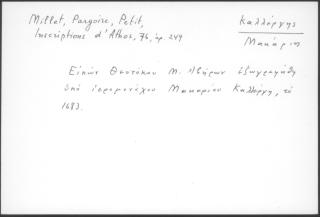 Millet, Pargoire, Petit,
Inscriptions d'Athos, 76, ἀρ. 249
Καλλέργης
Μακάριος
Εἰκών Θεοτόκου Μ. Ἰβήρων ἐζωγραφήθη
ὑπό ἱερομονάχου Μακαρίου Καλλέργη, τό
1683.